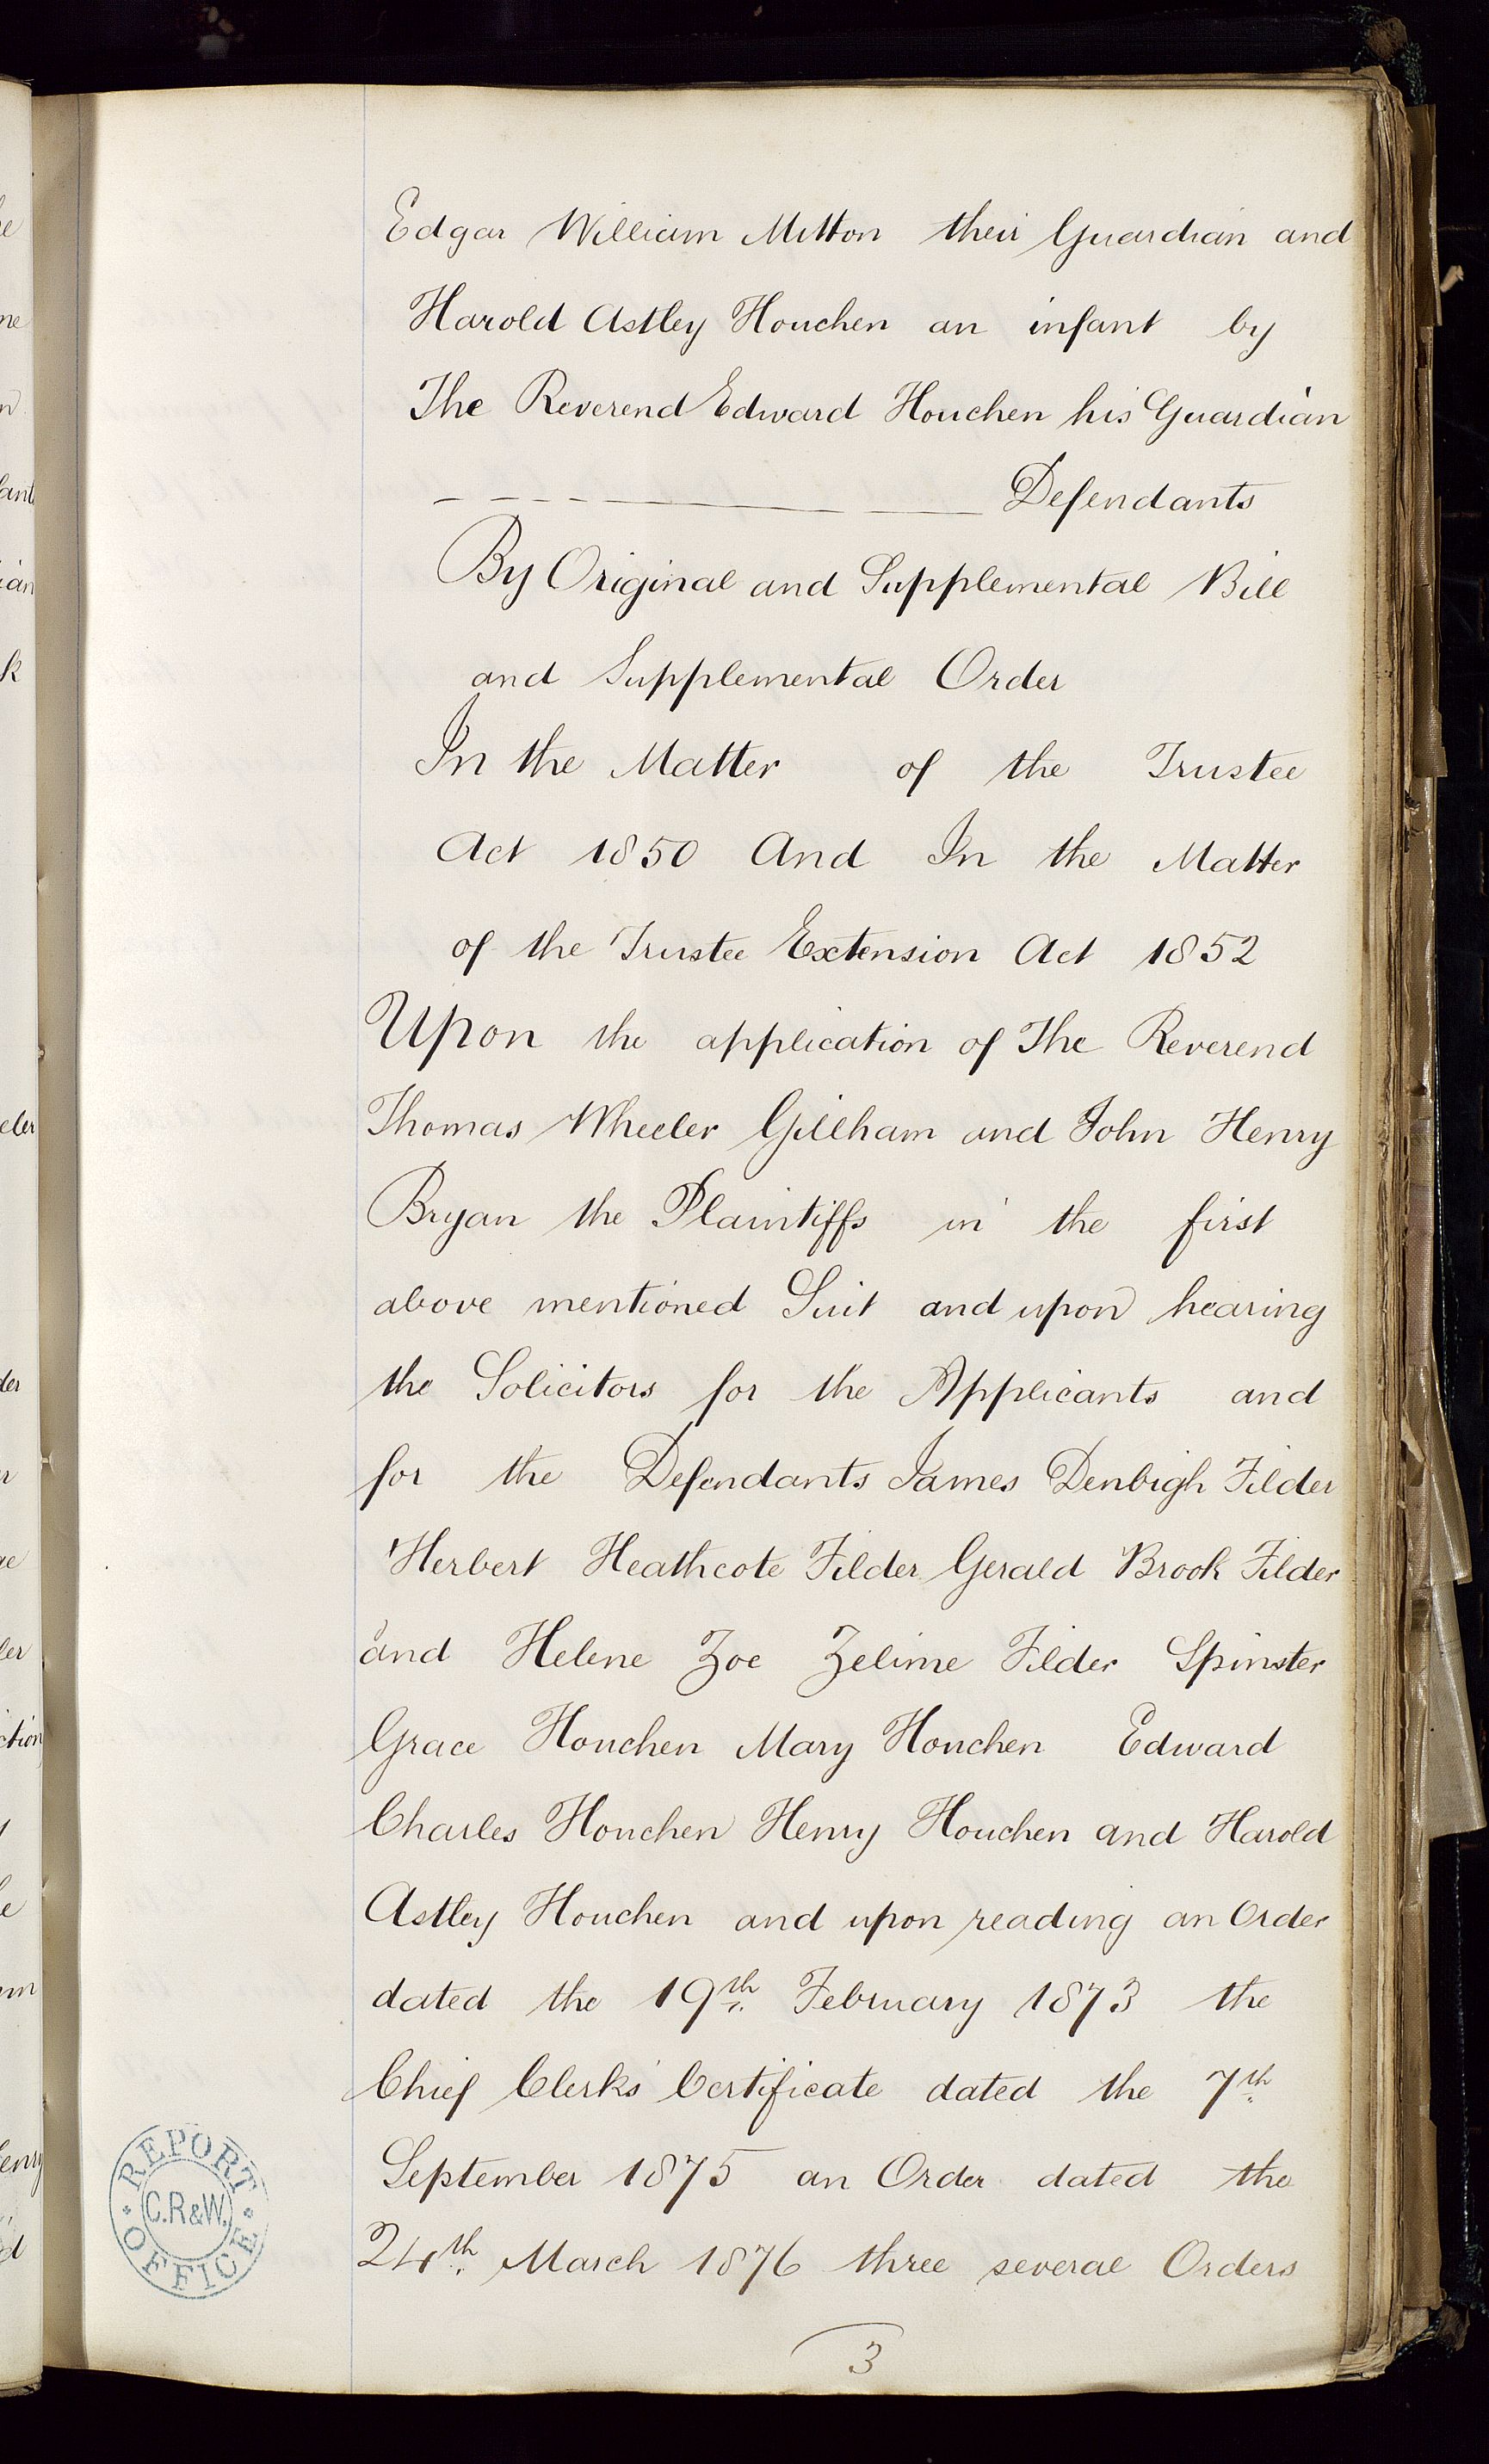 Edgar William Mitton their Guardian and
Harold Astley Houchen an infant by
The Reverend Edward Houchen his Guardian
Defendants
By Original and Supplemental Bill
and Supplemental Order
In the Matter of the Trustee
Act 1850 And In the Matter
of the Trustee Extension Act 1852
Upon the application of The Reverend
Thomas Wheeler Gillham and John Henry
Bryan the Plaintiffs in the first
above mentioned Suit and upon hearing
the Solicitors for the Applicants and
for the Defendants James Denbigh Filder
Herbert Heathcote Filder Gerald Brook Filder
and Helene Zoe Zelime Filder Spinster
Grace Houchen Mary Houchen Edward
Charles Houchen Henry Houchen and Harold
Astley Houchen and upon reading an Order
dated the 19th February 1873 the
Chief Clerks' Certificate dated the 7th
September 1875 an Order dated the
24th March 1876 three several Orders
3
REPORT OFFICE
C.R&W.